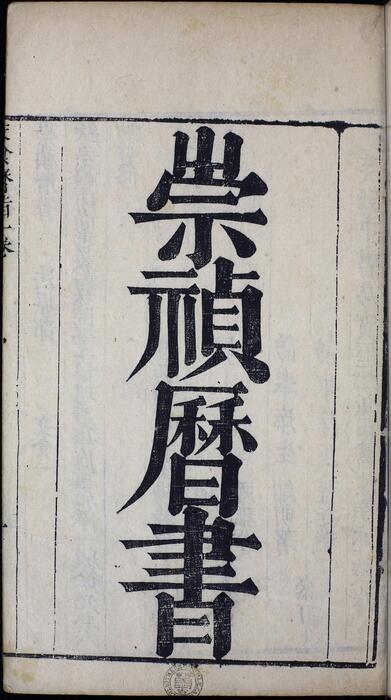 崇禎曆書